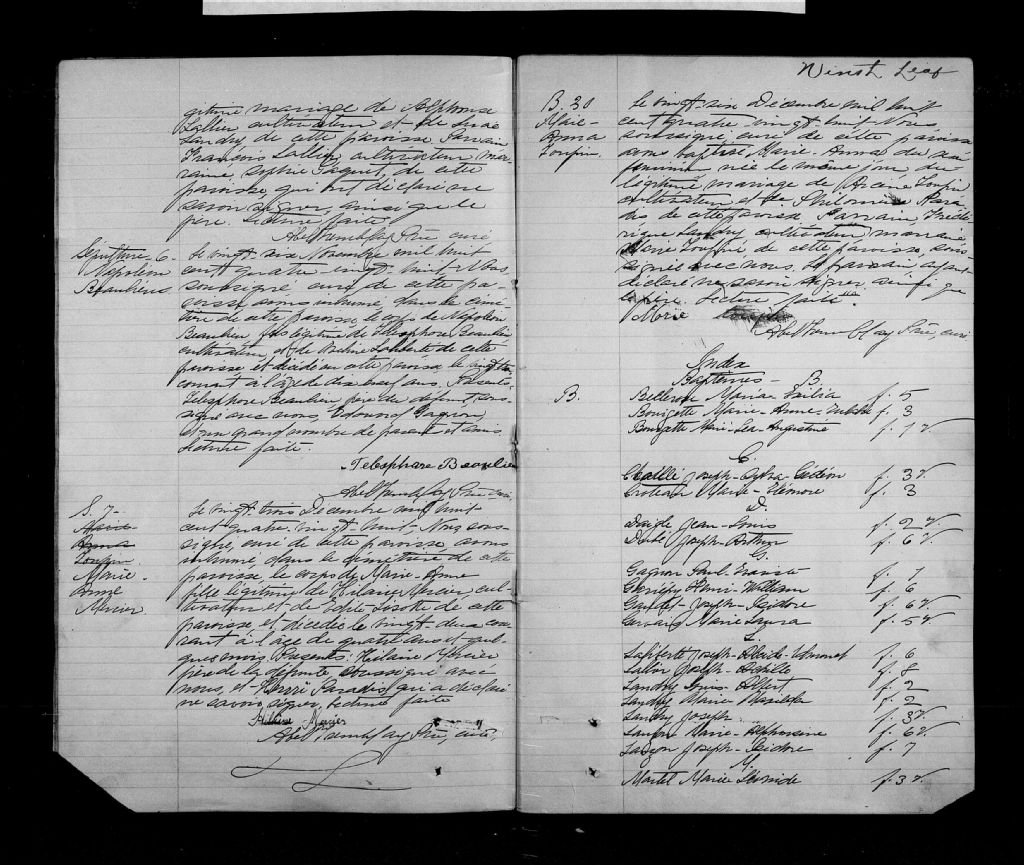 gitime mariage de Alphonse
Lallier cultivateur et de
Landry de cette paroisse Parrain
François Lallier, cultivateur mar-
raine, Sophie Paquet, de cette
paroisse qui ont déclaré ne
savoir signer, ainsi que le
père. Lecture faite
Abel Tremblay Ptre curé
Sépulture 6-
Napoléon
Beaulieu
Le vingt-six Novembre mil huit
cent quatre-vingt-huit Nous
soussigné curé de cette pa-
roisse avons inhumé, dans le cime-
tière de cette paroisse, le corps de Napoléon
Beaulieu fils légitime de Télesphore Beaulieu
cultivateur, et de Laliberté de cette
paroisse et décédé en cette paroisse le vingt
courant à l'âge de dix neuf ans. Présents
Télesphore Beaulieu père du défunt sous-
signé avec nous, Edouard Gagnon
et un grand nombre de parents et amis.
Lecture faite.
Telesphore Beaulieu
Abel Tremblay Ptre curé
S. 7-
Marie
Anna
Toupin
Marie-
Anne
Mercier
Le vingt-trois Décembre mil huit
cent quatre-vingt-huit-Nous sous-
signé, curé de cette paroisse avons
inhumé dans le cimetière de cette
paroisse, le corps de Marie-Anne
fille légitime de Hilaire Mercier cul-
tivateur et de Turcotte de cette
paroisse et décédée le vingt-deux cou-
rant à l'âge de quatre ans et quel-
ques mois Présents: Hilaire Mercier
père de la défunte soussigné avec
nous, et Henri Paradis qui a déclaré
ne savoir signer, lecture faite
Hilaire Mercier
Abel Tremblay Ptre, curé,
Winst Leaf
B. 20
Marie-
Anna
Toupin.
Le vingt-six Décembre mil huit
cent quatre vingt huit Nous
soussigné curé de cette paroisse
avons baptisé Marie-Anna du sexe
féminin née le même jour, du
légitime mariage de Toupin
cultivateur et de Philomène Para-
dis de cette paroisse. Parrain Frédé-
rique Landry cultivateur marraine
Marie Toupin de cette paroisse, sous-
signés avec nous. Le parrain ayant
déclaré ne savoir signer ainsi que
le père. Lecture faite.
Marie
Abel Tremblay Ptre, curé
Index
Baptêmes- B.
B.
Belleron Maria f. 5
Bourgette Marie-Anne f. 3
Bourgette Marie-Lea-Augustine f. 1 v.
C.
Joseph f. 3v.
Croteau Marie f. 3
D.
Daigle Jean-Louis f. 2 v.
Dubé Joseph-Arthur f. 6 v.
G.
Gagnon Paul f. 1
Henri-William f. 6
Gaudet Joseph-Isidore f. 6v.
Gervais Marie Laura f. 5v
L.
Laliberté Joseph f. 6
Joseph-Achille f. 8
Landry Louis-Albert f. 2
Landry Marie f. 2
Landry Joseph f. 3v.
Lauzon Marie-Alphonsine f. 6v.
Lauzon Joseph-Isidore f. 7
M.
Martel Marie Léonide f. 3 v.